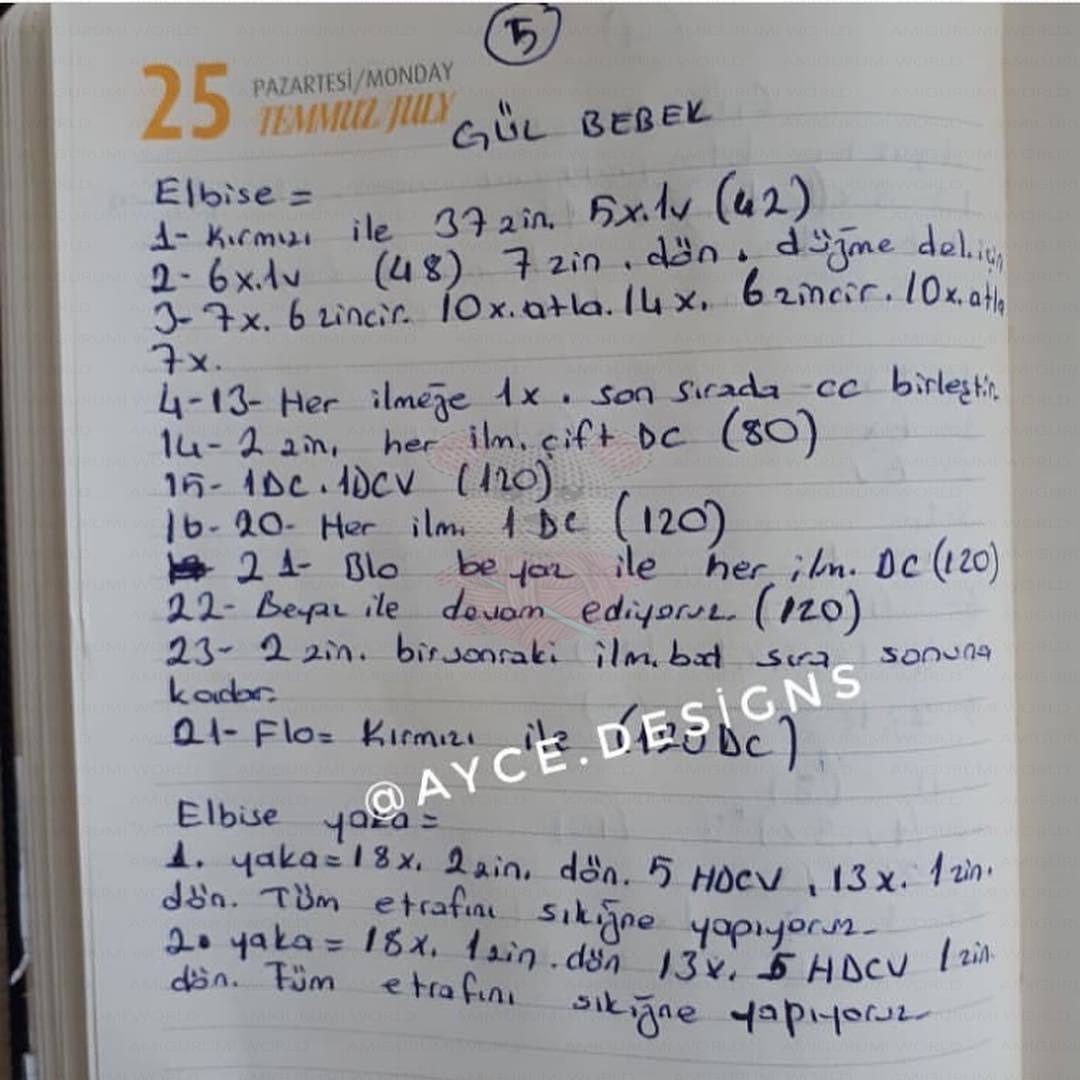 5
25 PAZARTESİ/MONDAY
TEMMUZ/JULY
GÜL BEBEK
Elbise =
1- Kırmızı ile 37 zin. 5x.1v (42)
2- 6x.1v (48) 7 zin. dön. düğme del.için
3- 7x. 6 zincir. 10x.atla. 14x. 6 zincir. 10x.atla
7x.
4-13- Her ilmeğe 1x. son sırada cc birleştir.
14- 2 zin, her ilm. çift DC (80)
15- 1DC. 1DCV (120)
16-20- Her ilm. 1 DC (120)
21- Blo beyaz ile her ilm. DC (120)
22- Beyaz ile devam ediyoruz. (120)
23- 2 zin. bir sonraki ilm. bat sıra sonuna
kadar.
21- Flo= Kırmızı ile (120 DC)
@AYCE.DESİGNS
Elbise yaka=
1. yaka=18x. 2zin. dön. 5 HDCV, 13x. 1zin.
dön. Tüm etrafını sıkiğne yapıyoruz.
2. yaka= 18x. 1zin. dön 13x. 5 HDCV 1zin.
dön. Tüm etrafını sıkiğne yapıyoruz.